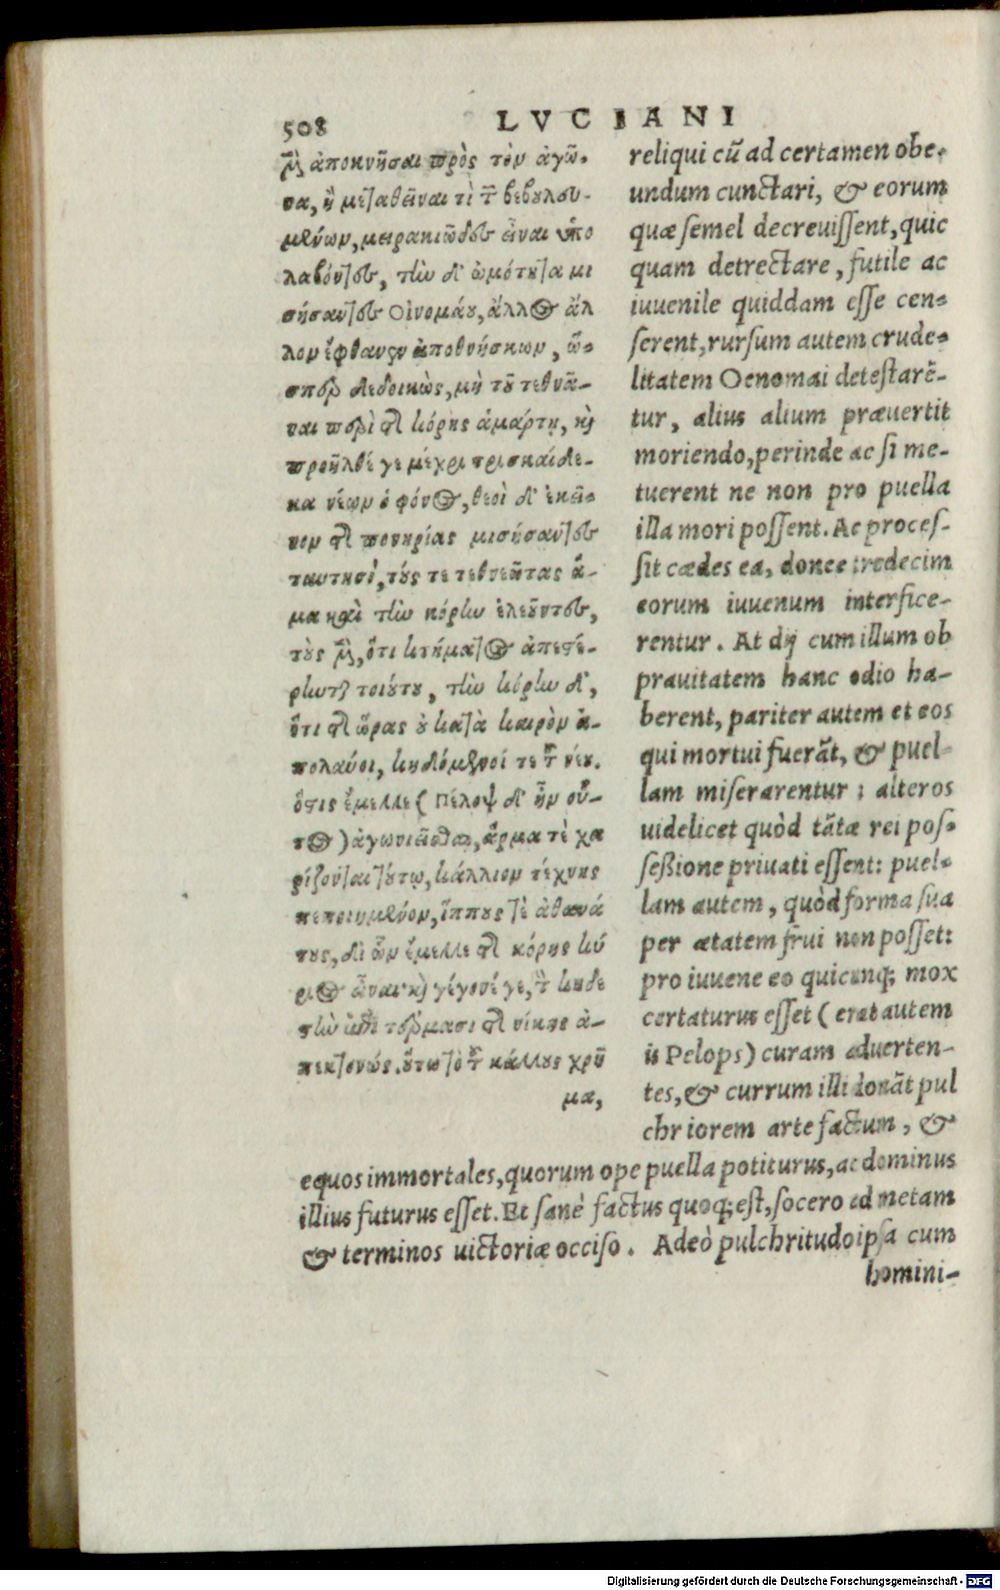 508 LVCIANI
μὲν ἀποκνῆσαι πρὸς τὸν ἀγῶ-
να, ἢ μεταθεῖναι τὶ τῶν βεβουλευ-
μένων, μειρακιῶδες εἶναι ὑπο
λαβόντες, τὴν δ' ὠμότητα μι
σήσαντες Οἰνομάου, ἄλλος ἄλ
λον ἔφθανεν ἀποθνήσκων, ὥ-
σπερ δεδοικὼς, μὴ τοῦ τεθνᾶ-
ναι περὶ τῆς κόρης ἁμάρτῃ, καὶ
προῆλθέ γε μέχρι τρισκαίδε-
κα νέων ὁ φόνος, θεοὶ δ' ἐκεῖ-
νον τῆς πονηρίας μισήσαντες
ταυτησὶ, τούς τε τεθνεῶτας ἅ-
μα καὶ τὴν κόρην ἐλεοῦντες,
τοὺς μὲν, ὅτι κτήματος ἀπεστέ-
ρηνται τοιούτου, τὴν κόρην δ',
ὅτι τῆς ὥρας οὐ κατὰ καιρὸν ἀ-
πολαύοι, κηδόμενοί τε τοῦ νέου.
ὅστις ἔμελλε (Πέλοψ δ' ἦν οὗ-
τος) ἀγωνιεῖσθαι, ἅρμα τὲ χα
ρίζονται τούτῳ, κάλλιον τέχνης
πεποιημένον, ἵππους τὲ ἀθανά
τους, δι ὧν ἔμελλε τῆς κόρης κύ
ριος εἶναι· καὶ γέγονέ γε, τὸν κηδε
στὴν ἐπὶ τέρμασι τῆς νίκης ἀ-
πεκτονώς. οὕτω τὸ τοῦ κάλλους χρῆ
μα,
reliqui cū ad certamen obe-
undum cunctari, & eorum
quæ semel decreuissent, quic
quam detrectare, futile ac
iuuenile quiddam esse cen-
serent, rursum autem crude-
litatem Oenomai detestarē-
tur, alius alium præuertit
moriendo, perinde ac si me-
tuerent ne non pro puella
illa mori possent. Ac proces-
sit cædes ea, donec tredecim
eorum iuuenum interfice-
rentur. At dij cum illum ob
prauitatem hanc odio ha-
berent, pariter autem et eos
qui mortui fuerāt, & puel-
lam miserarentur: alteros
uidelicet quòd tātæ rei pos-
seßione priuati essent: puel-
lam autem, quòd forma sua
per ætatem frui non posset:
pro iuuene eo quicunq; mox
certaturus esset (erat autem
is Pelops) curam aduerten-
tes, & currum illi donāt pul
chriorem arte factum, &
equos immortales, quorum ope puella potiturus, ac dominus
illius futurus esset. Et sanè factus quoq; est, socero ad metam
& terminos uictoriæ occiso. Adeò pulchritudo ipsa cum
homini-
Digitalisierung gefördert durch die Deutsche Forschungsgemeinschaft - DFG